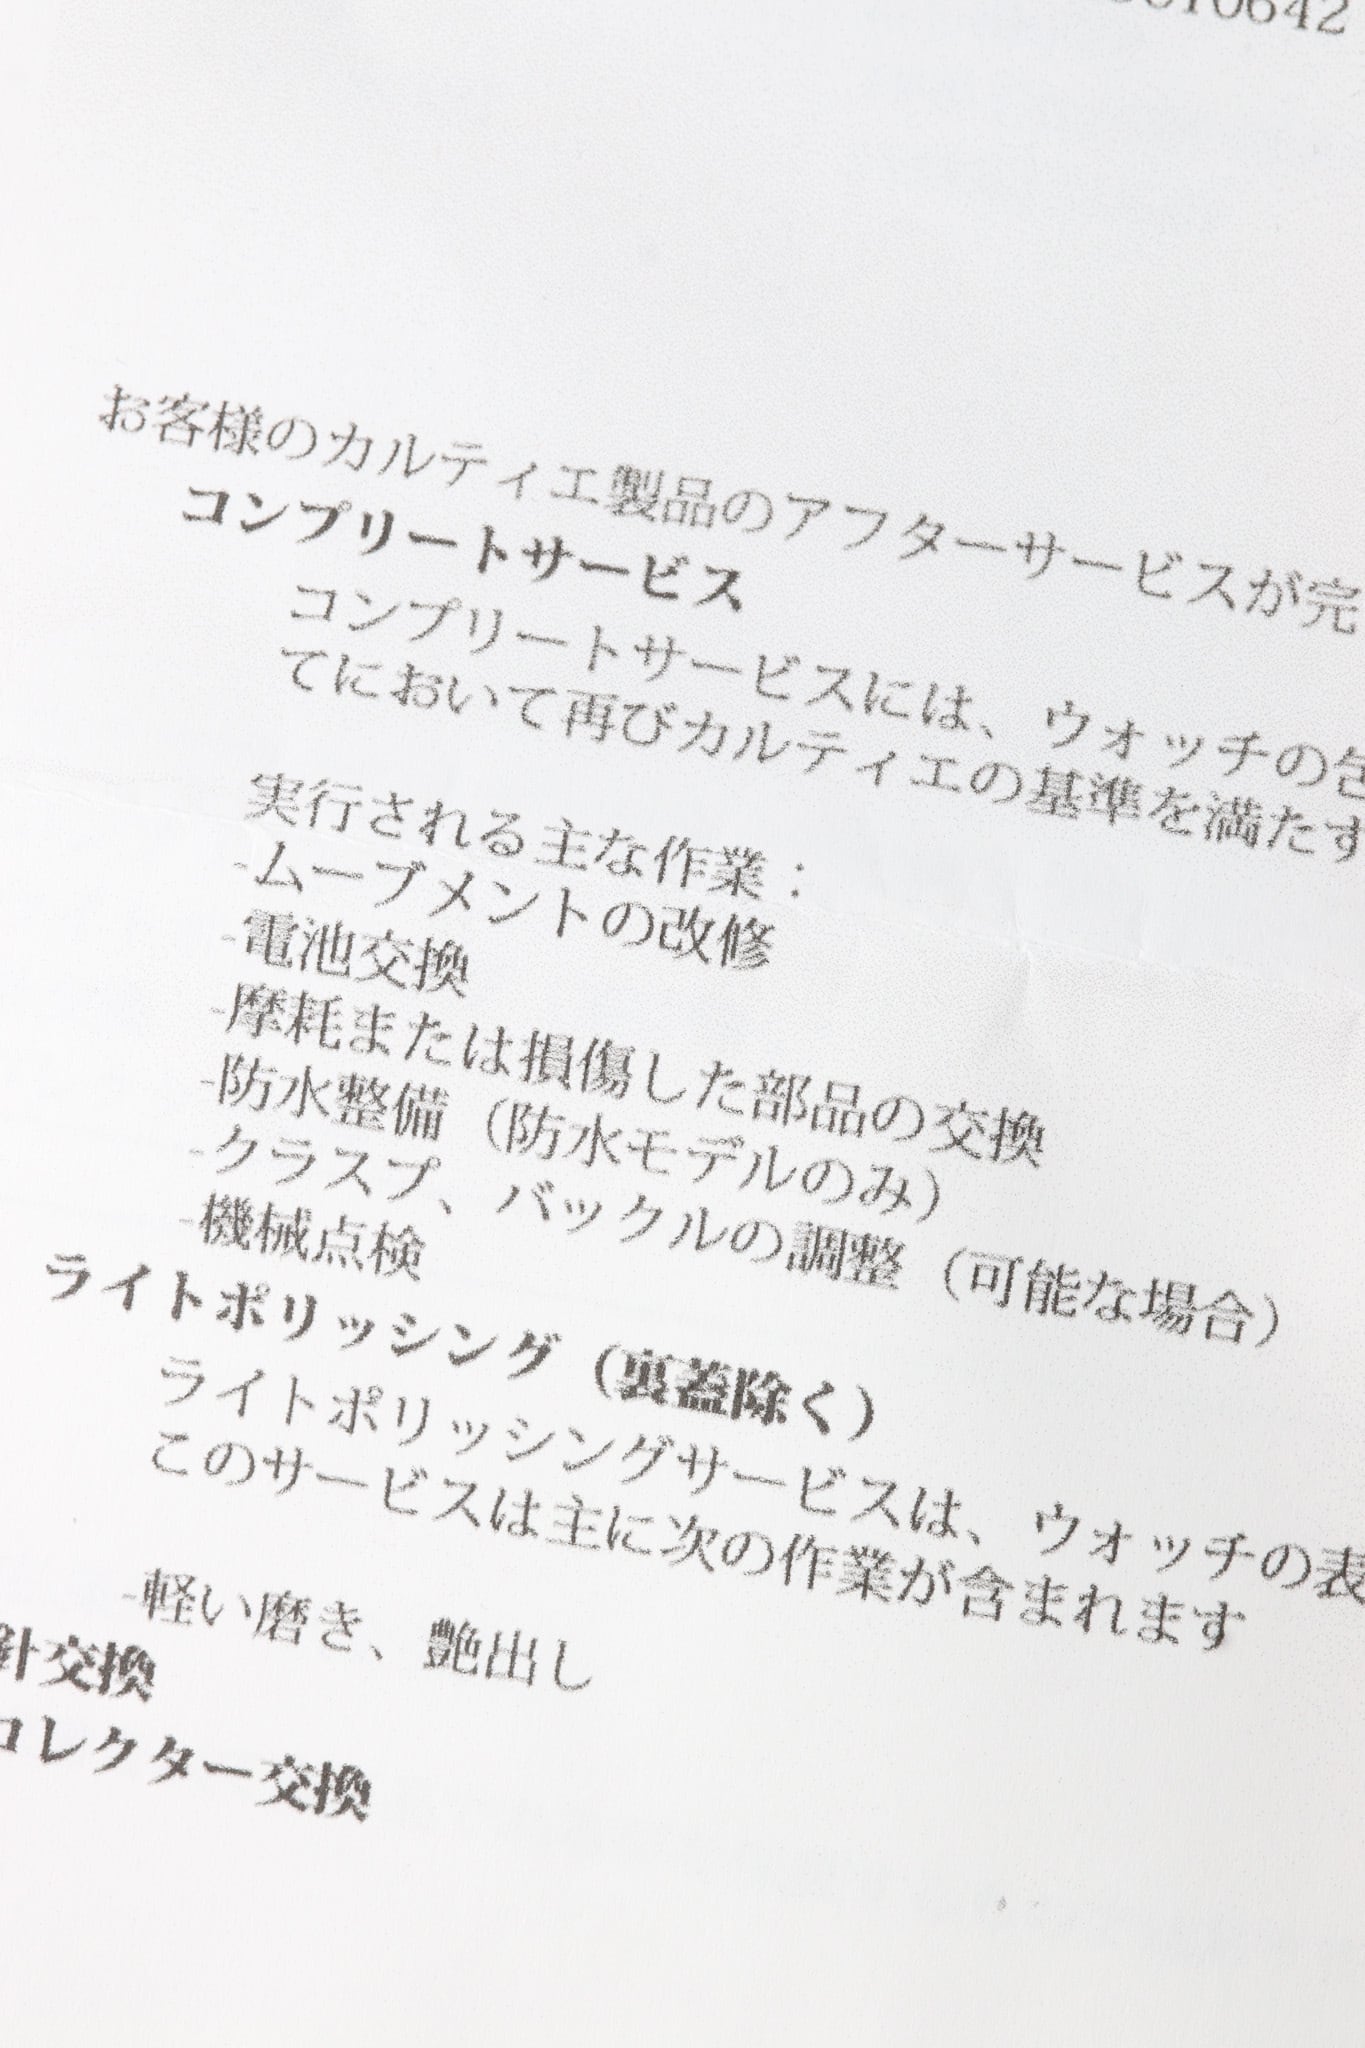 0642
お客様のカルティエ製品のアフターサービスが完
コンプリートサービス
コンプリートサービスには、ウォッチの包
てにおいて再びカルティエの基準を満たす
実行される主な作業：
-ムーブメントの改修
-電池交換
-摩耗または損傷した部品の交換
-防水整備（防水モデルのみ）
-クラスプ、バックルの調整（可能な場合）
-機械点検
ライトポリッシング（裏蓋除く）
ライトポリッシングサービスは、ウォッチの表
このサービスは主に次の作業が含まれます
-軽い磨き、艶出し
針交換
コレクター交換